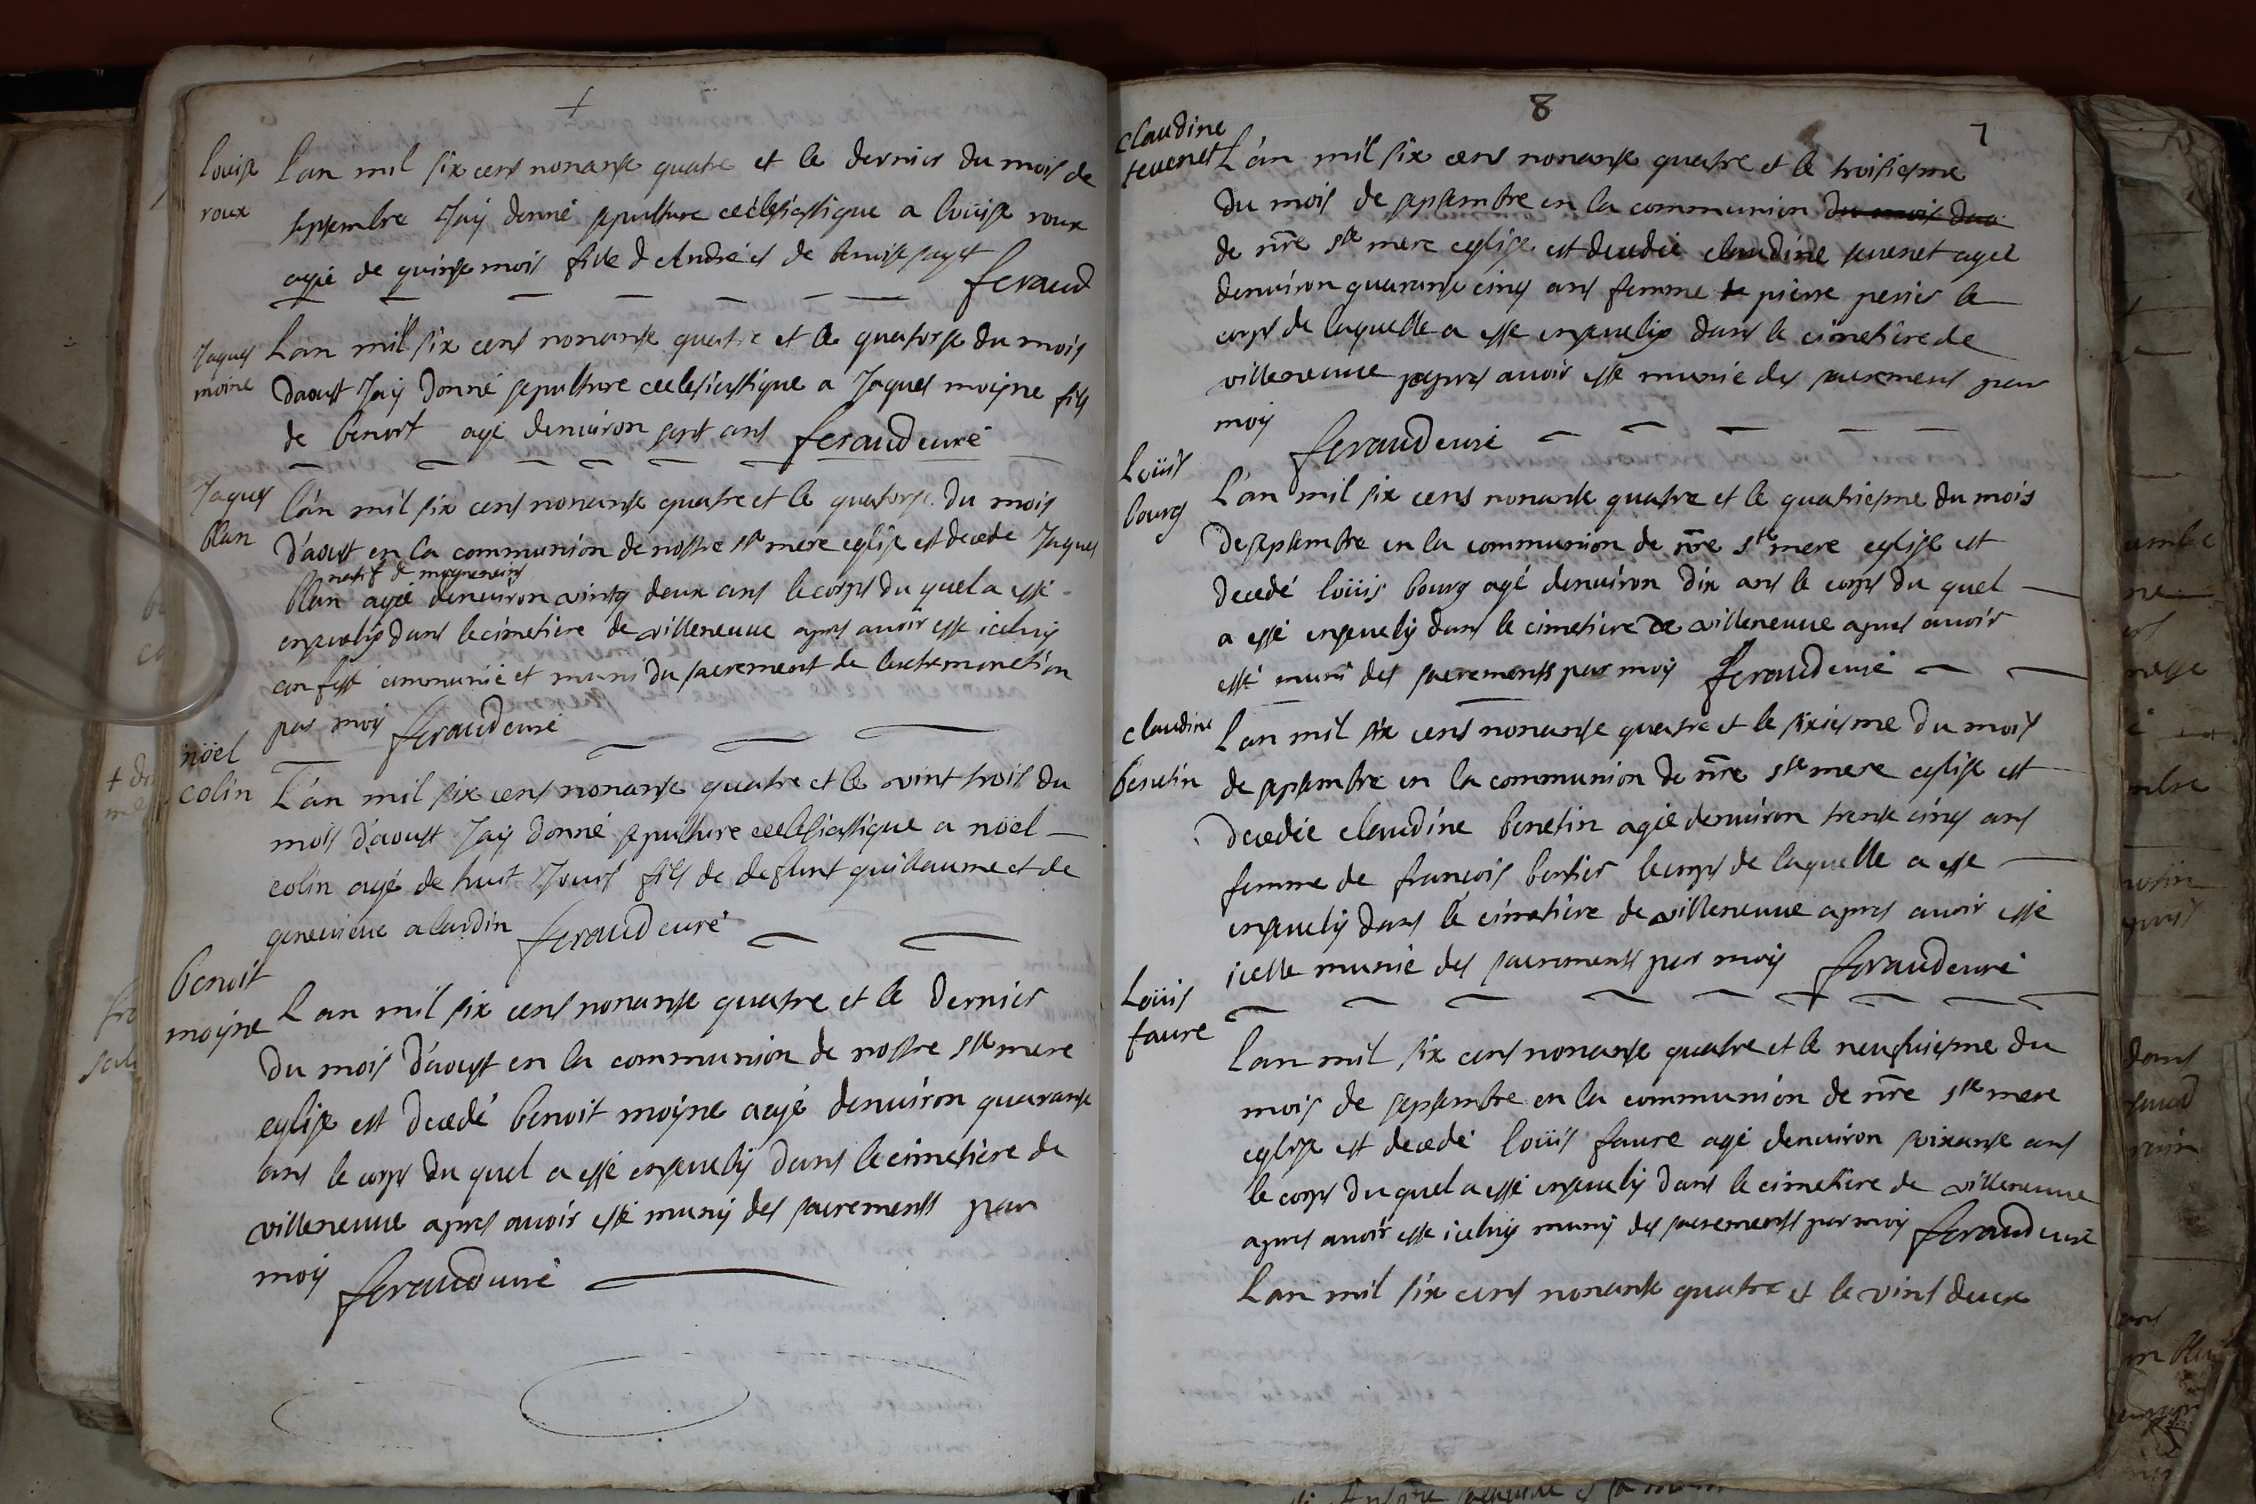 louise
roux
Lan mil six cens nonante quatre et le dernier du mois de
septembre Jaÿ donné sepulture ecclesiastique a loüise roux
agée de quinse mois fille d André et de benoite
feraud
Jaques
moine
Lan mil six cens nonante quatre et le quatorse du mois
daoust Jaÿ donné sepulture ecclesiastique a Jaques moÿne fils
de benoit agé denuiron sept ans feraud curé
Jaques
blan
lán mil six cens nonante quatre et le quatorse du mois
d'aoust en la communion de nostre ste mere eglise est decede Jaques
natif de
blan agé denuiron vintg deux ans le corps du quel a esté
enseuelÿ dans le cimetiere de villeneuue apres auoir esté iceluÿ
confessé communié et muni du sacrement de lextremonction
par moÿ feraud curé
nöel
colin
L'án mil six cens nonante quatre et le vint trois du
mois d'aoust Jaÿ donné sepulture ecclesiastique a nöel
colin agé de huit Jours fils de defunt guillaume et de
geneuieue alardin feraud curé
benoit
moÿne
Lan mil six cens nonante quatre et le dernier
du mois d'aoust en la communion de nostre ste mere
eglise est decedé benoit moÿne agé denuiron quarante
ans le corps du quel a esté enseuelÿ dans le cimetiere de
villeneuue apres auoir esté munÿ des sacrements par
moÿ feraud curé
8
7
claudine
teuenet
L'án mil six cens nonante quatre et le troisiesme
du mois de septembre en la communion du mois
de nre ste mere eglise est decedée claudine teuenet agée
denuiron quarante cinq ans femme de pierre perier le
corps de laquelle a esté enseuelÿ dans le cimetiere de
villeneuue apres auoir esté munie des sacremens par
moÿ feraud curé
Loüis
bourg
L'an mil six cens nonante quatre et le quatriesme du mois
de septembre en la communion de nre ste mere eglise est
decedé loüis bourg agé denuiron dix ans le corps du quel
a esté enseuelÿ dans le cimetiere de villeneuue apres auoir
esté muni des sacrements par moÿ feraud curé
claudine
benetin
Lan mil six cens nonante quatre et le sixiesme du mois
de septembre en la communion de nre ste mere eglise est
decedée claudine benetin agée denuiron trente cinq ans
femme de françois bertier le corps de laquelle a esté
enseuelÿ dans le cimetiere de villeneuue apres auoir esté
icelle munie des sacrements par moÿ feraud curé
Loüis
faure
Lan mil six cens nonante quatre et le neufuiesme du
mois de septembre en la communion de nre ste mere
eglise est decedé loüis faure agé denuiron soixante ans
le corps du quel a esté enseuelÿ dans le cimetiere de villeneuue
apres auoir esté iceluÿ munÿ des sacrements par moÿ feraud curé
Lan mil six cens nonante quatre et le vint deux